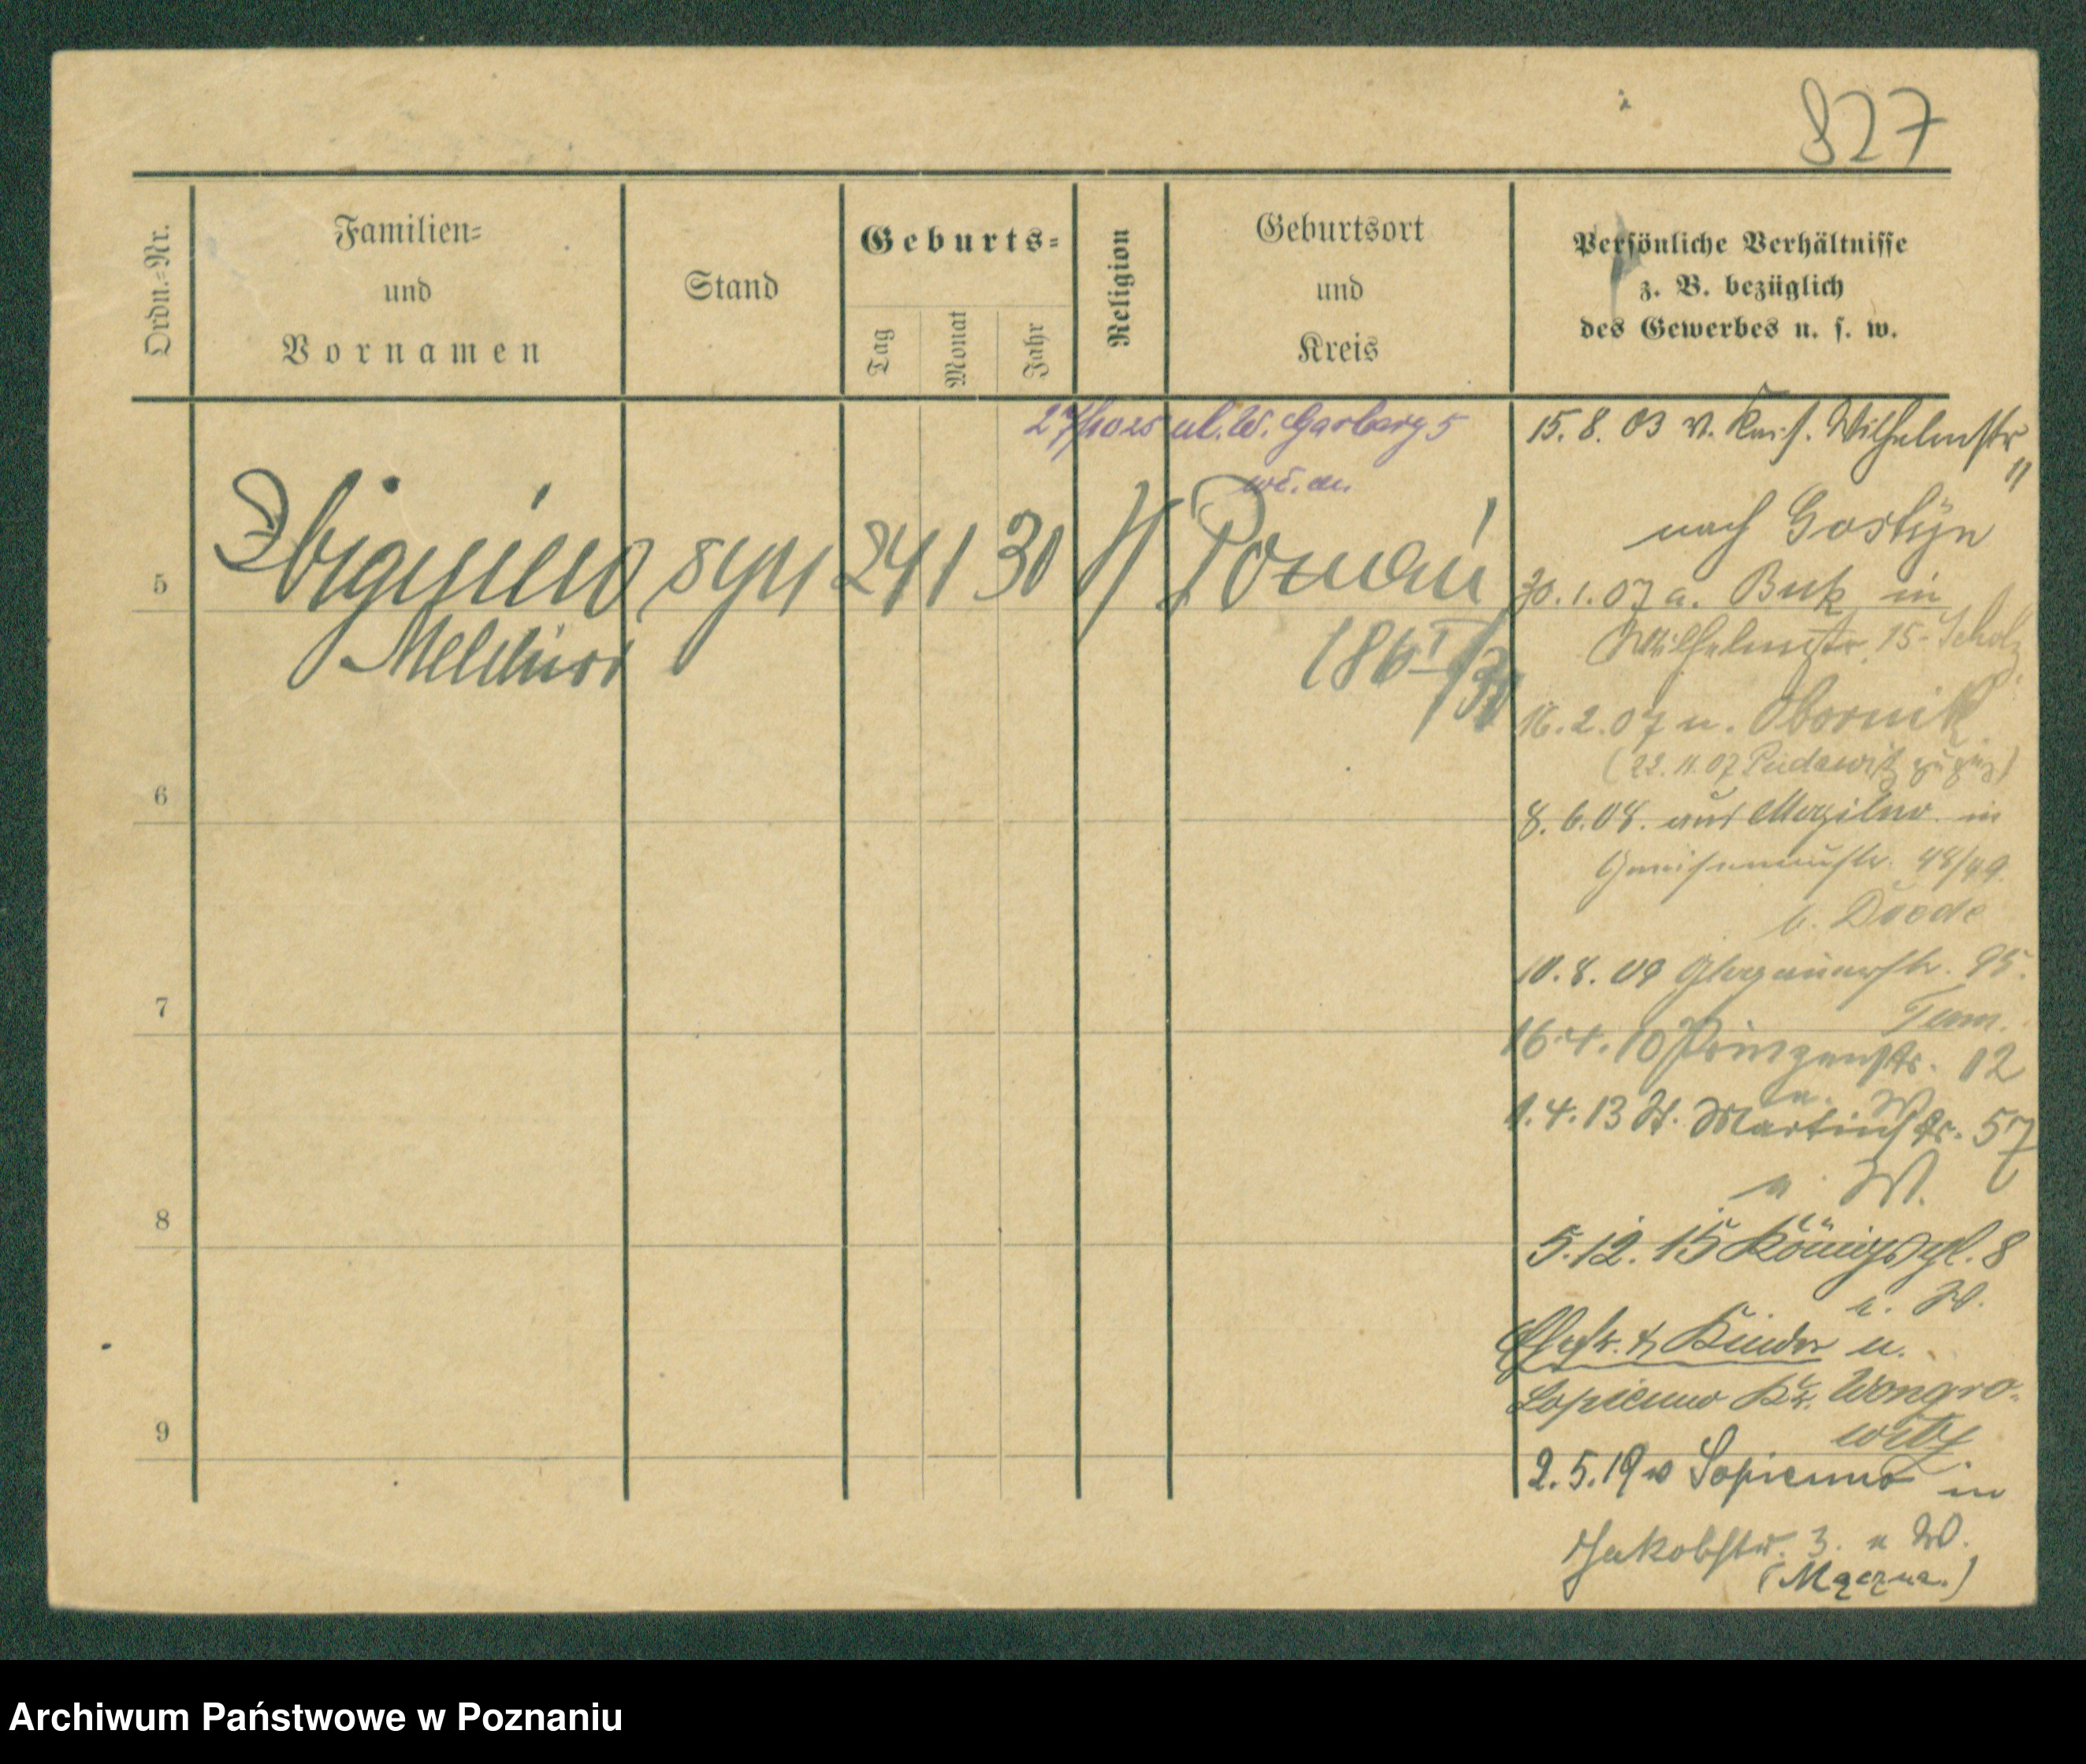 827
Ordn.=Nr.
Familien=
und
Vornamen
Stand
Geburts=
Tag
Monat
Jahr
Religion
Geburtsort
und
Kreis
Persönliche Verhältnisse
z. B. bezüglich
des Gewerbes u. s. w.
ul. W. Garbary 5
5
Zbigniew
syn
24 1 30
Poznań
186 I/30
6
7
8
9
15.8.03 v. Kais. Wilhelmstr
11
nach Gostyn
30.1.07 a. Buk in
Wilhelmstr. 15 - Scholz
16.2.07 n. Obornik
(22.11.07 Pudewitz
8.6.08. aus Mogilno in
Gneisenaustr. 48/49.
10.8.09 Glogauerstr. 95.
16.4.10 Prinzenstr. 12
1.4.13 St. Martinstr. 57
u. W.
5.12.15 Königspl. 8
u. W.
Kinder n.
Lopienno Kr. Wongro-
witz
2.5.19 v Lopienno in
Jakobstr. 3. u W.
Archiwum Państwowe w Poznaniu